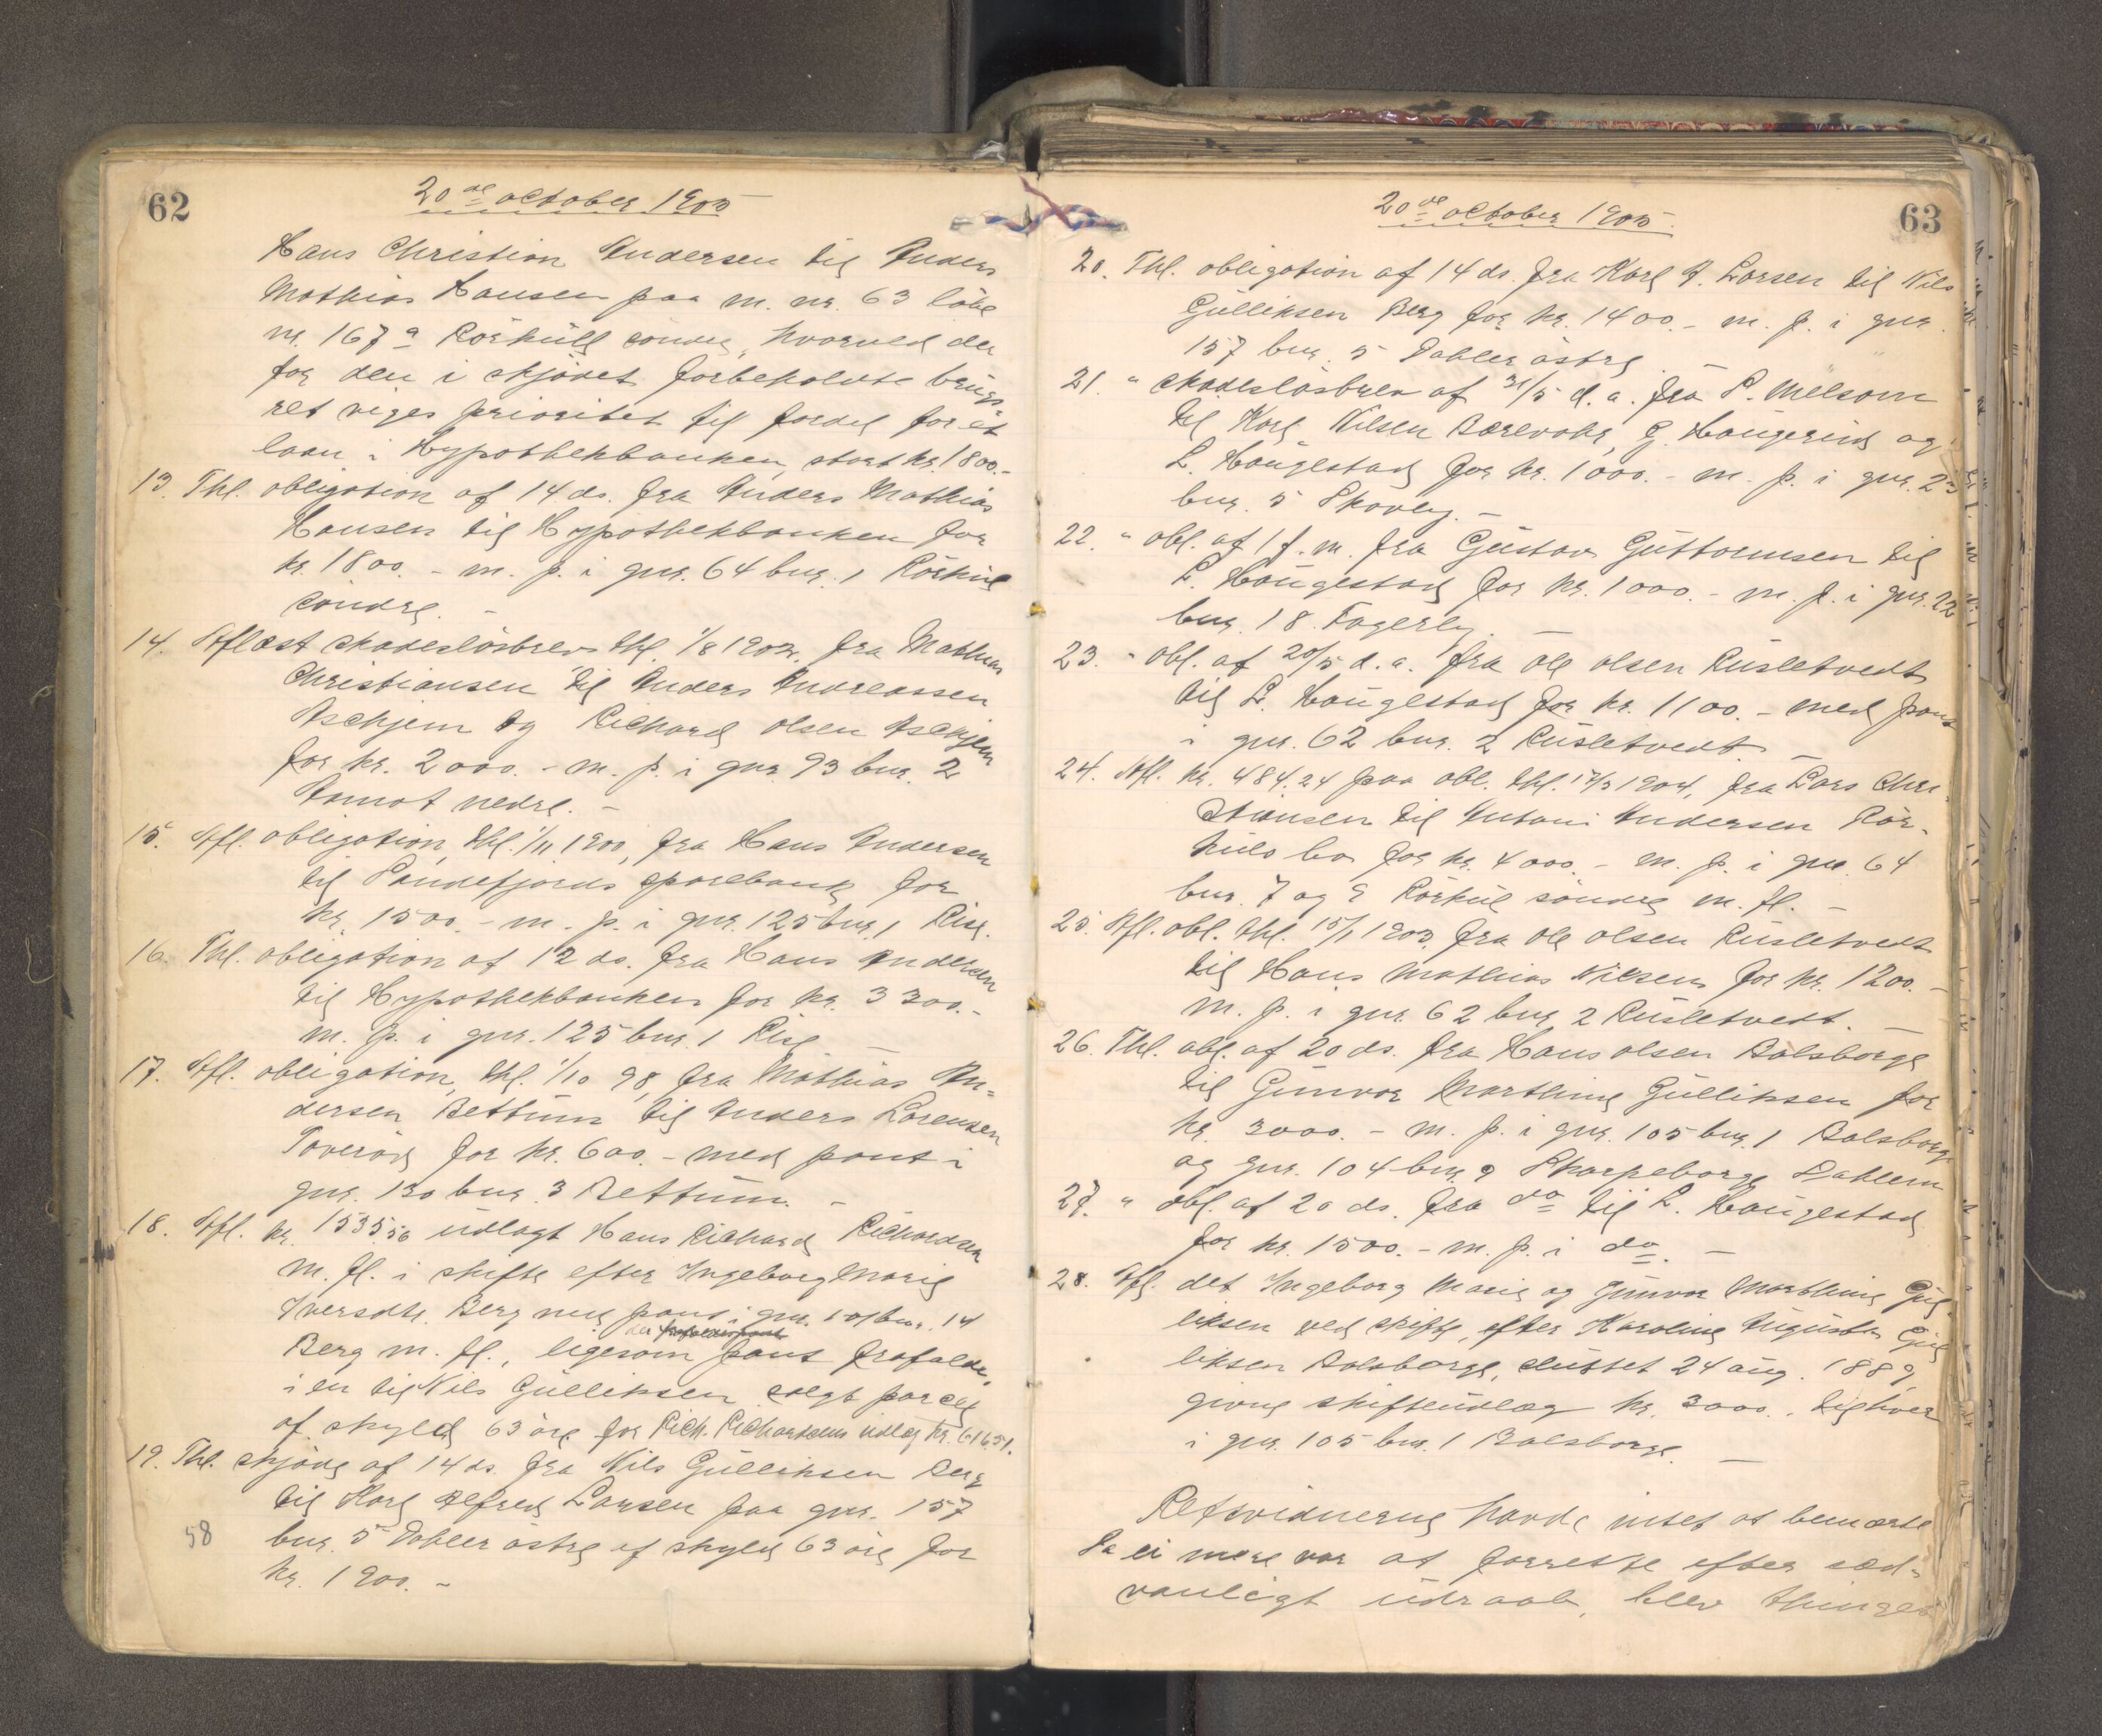 62
20de october 1905
Hans Christian Andersen til Anders
Mathias Hansen paa m. nr. 63 löbe
nr. 167a Rörküll söndre, hvorved der
for den i skjödet forbeholdte brügs-
ret viges prioritet til fordel for et
laan i Hypothekbanken, stort kr. 1800.-
13. Thl. obligation af 14 ds. fra Anders Mathias
Hansen til Hypothekbanken for
kr. 1800.- m. p. i gnr. 64 bnr. 1 Rörküll
söndre. -
14. Aflæst skadeslösbrev thl. 1/8 1902, fra Mathias
Christiansen til Anders Andreassen
Askjem og Richard Olsen Askjem
for kr. 2000.- m. p. i gnr. 93 bnr. 2
Aamot nedre. -
15. Afl. obligation, thl. 1/11 1900, fra Hans Andersen
til Sandefjords sparebank for
kr. 1500.- m. p. i gnr. 125 bnr. 1 Rise.
16. Thl. obligation af 12 ds. fra Hans Andersen
til Hypothekbanken for kr. 3300.-
m. p. i gnr. 125 bnr. 1 Rise -
17. Afl. obligation, thl. 1/10 98, fra Mathias An-
dersen Bettüm til Anders Lorensen
Toveröd for kr. 600.- med pant i
gnr. 130 bnr. 3 Bettüm. -
18. Afl. kr. 1535,56 üdlagt Hans Richard Richardsen
m. fl. i skifte efter Ingeborg Marie
Iversdtr. Berg med pant i gnr. 101 bnr. 14
Berg m. fl., ligesom pant frafaldes
i en til Nils Gülliksen solgt parcel
af skyld 63 öre for Rich. Richardsens üdlæg kr. 616,51.
19. Thl. skjöde af 14 ds. fra Nils Gülliksen Berg
til Karl Alfred Larsen paa gnr. 157
58
bnr. 5 Dahler östre af skyld 63 öre for
kr. 1900. -
63
20de october 1905
20. Thl. obligation af 14 ds. fra Karl A. Larsen til Nils
Gülliksen Berg for kr. 1400.- m. p. i gnr.
157 bnr. 5 Dahler östre -
21. " skadeslösbrev af 31/5 d. a. fra S. Melsom
til Karl Nilsen Barevahr, G. Haügerüd og
L. Haügestad for kr. 1000.- m. p. i gnr. 23
bnr. 5 Skovly. -
22. " obl. af 1 f. m. fra Güstav Güttormsen til
L. Haügestad for kr. 1000.- m. p. i gnr. 22
bnr. 18 Fagerly. -
23. " obl. af 20/5 d. a. fra Ole Olsen Rüsletvedt
til L. Haügestad for kr. 1100.- med pant
i gnr. 62 bnr. 2 Rüsletvedt. -
24. Afl. kr. 484.24 paa obl. thl. 17/3 1904, fra Lars Chri-
stiansen til Antoni Andersen Rör-
küls bo for kr. 4000.- m. p. i gnr. 64
bnr. 7 og 9 Rörkül söndre m. fl. -
25. Afl. obl. thl. 15/1 1903 fra Ole Olsen Rüsletvedt
til Hans Mathias Nilsen for kr. 1200.-
m. p. i gnr. 62 bnr. 2 Rüsletvedt. -
26. Thl. obl. af 20 ds. fra Hans Olsen Bolsborge
til Günvor Marthine Gülliksen for
kr. 3000.- m. p. i gnr. 105 bnr. 1 Bolsborge
og gnr. 104 bnr. 9 Skorpeborge Dahlem
27. " obl. af 20 ds. fra do til L. Haügestad
for kr. 1500.- m. p. i do. -
28. Afl. det Ingeborg Marie og Günvor Marthine Gül-
liksen ved skifte efter Karoline Aügüsta Gül-
liksen Bolsborge, slüttet 24 aüg. 1889,
givne skifteüdlæg kr. 3000.- til hver
i gnr. 105 bnr. 1 Bolsborge. -
Retsvidnerne havde intet at bemærke
Da ei mere var at forrette efter sæd-
vanligt üdraab, blev thinget